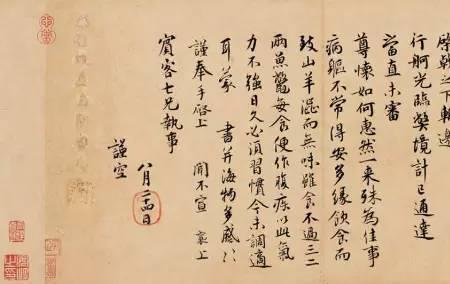 朝之下輒邀
行舸光臨弊境計已通達
當直未審
尊懷如何惠然一来殊為佳事
病軀不常得安多緣飲食而
致山羊澀而無味雖食不過三二
兩魚鱉每食便作腹疾以此氣
力不強日久必須習慣今未調適
耳蒙 書并海物多感〻
謹奉手啓上 聞不宣 襄上
賓客七兄執事
八月二十四日
謹空